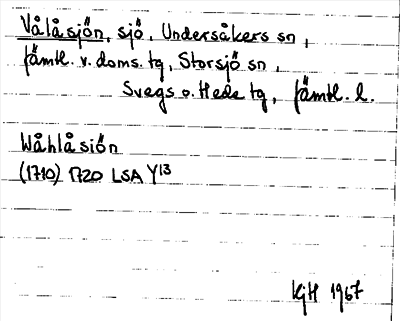 Vålåsjön, sjö, Undersåkers sn,
Jämtl. v. doms. tg, Storsjö sn,
Svegs o. Hede tg, Jämtl. l.
Wåhlåsiön
(1710) 1720 LSA Y13
KjH 1967